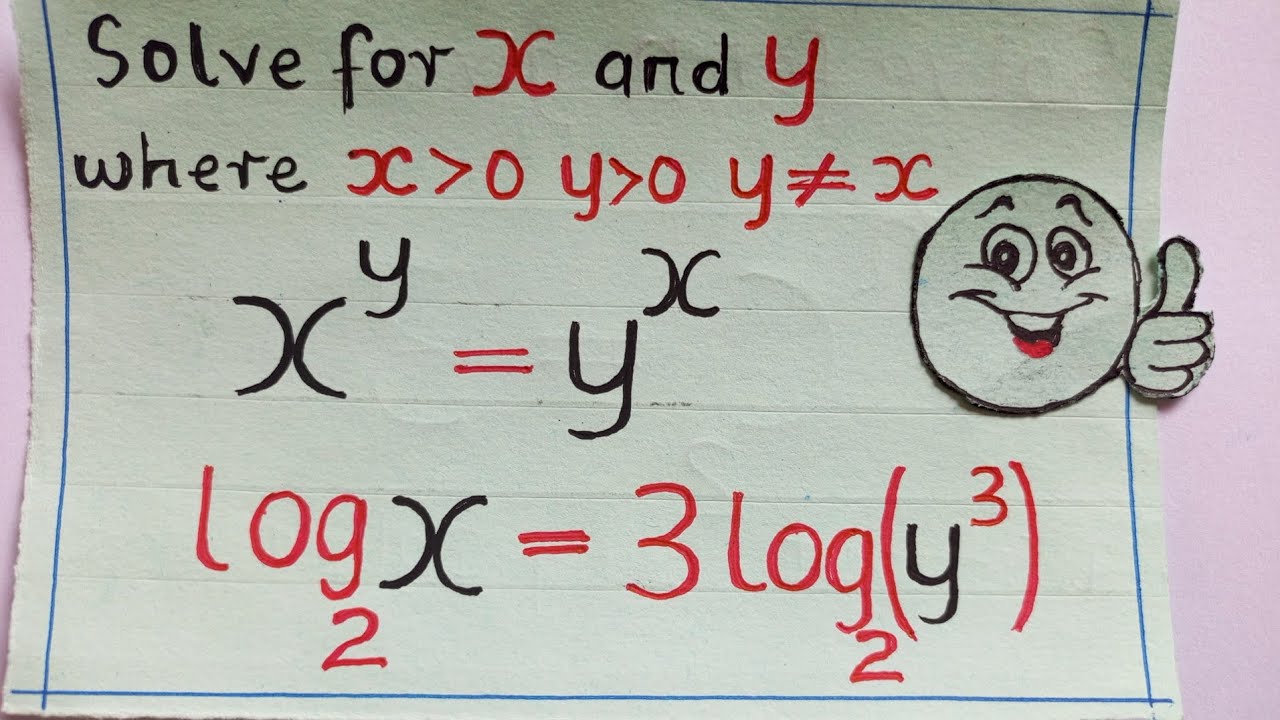 Solve for x and y
where x>0 y>0 y≠x
x^y = y^x
log₂x = 3log₂(y³)